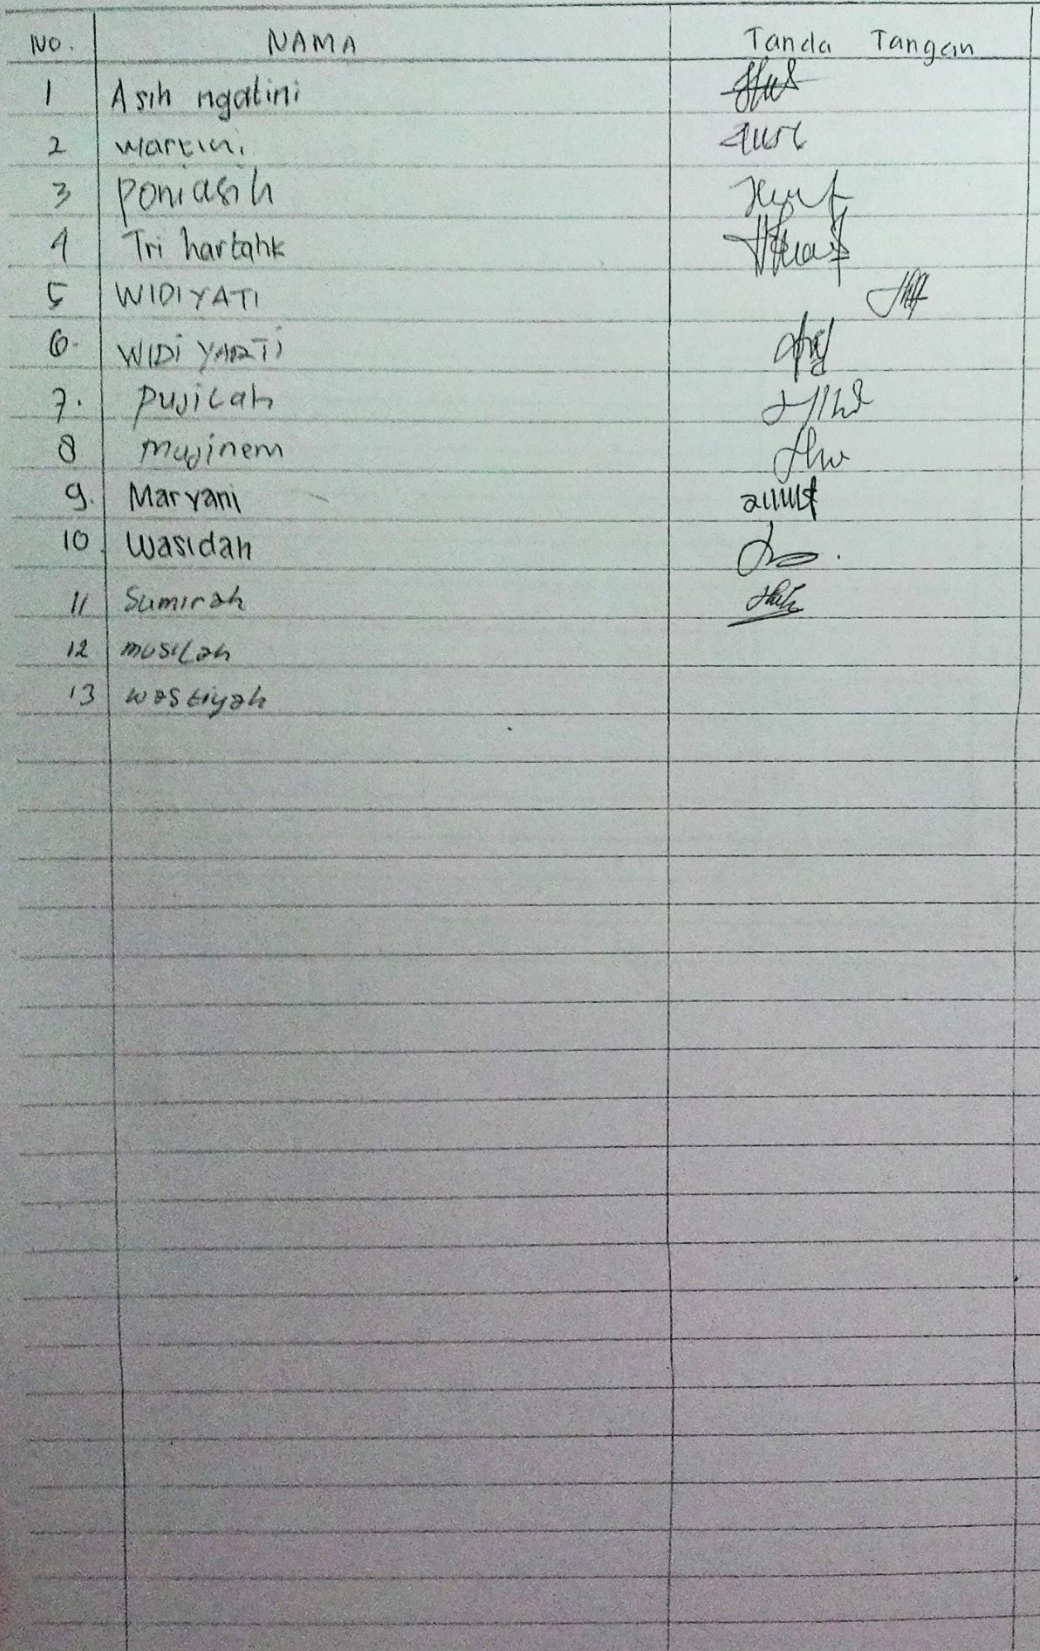 No. NAMA Tanda Tangan
1 Asih ngatini
2 wartini
3 poniasih
4 Tri hartatik
5 WIDIYATI
6. WIDI YARTI
7. pujilah
8 mujinem
9. Maryani
10 Wasidah
11 Sumirah
12 musilah
13 wastiyah